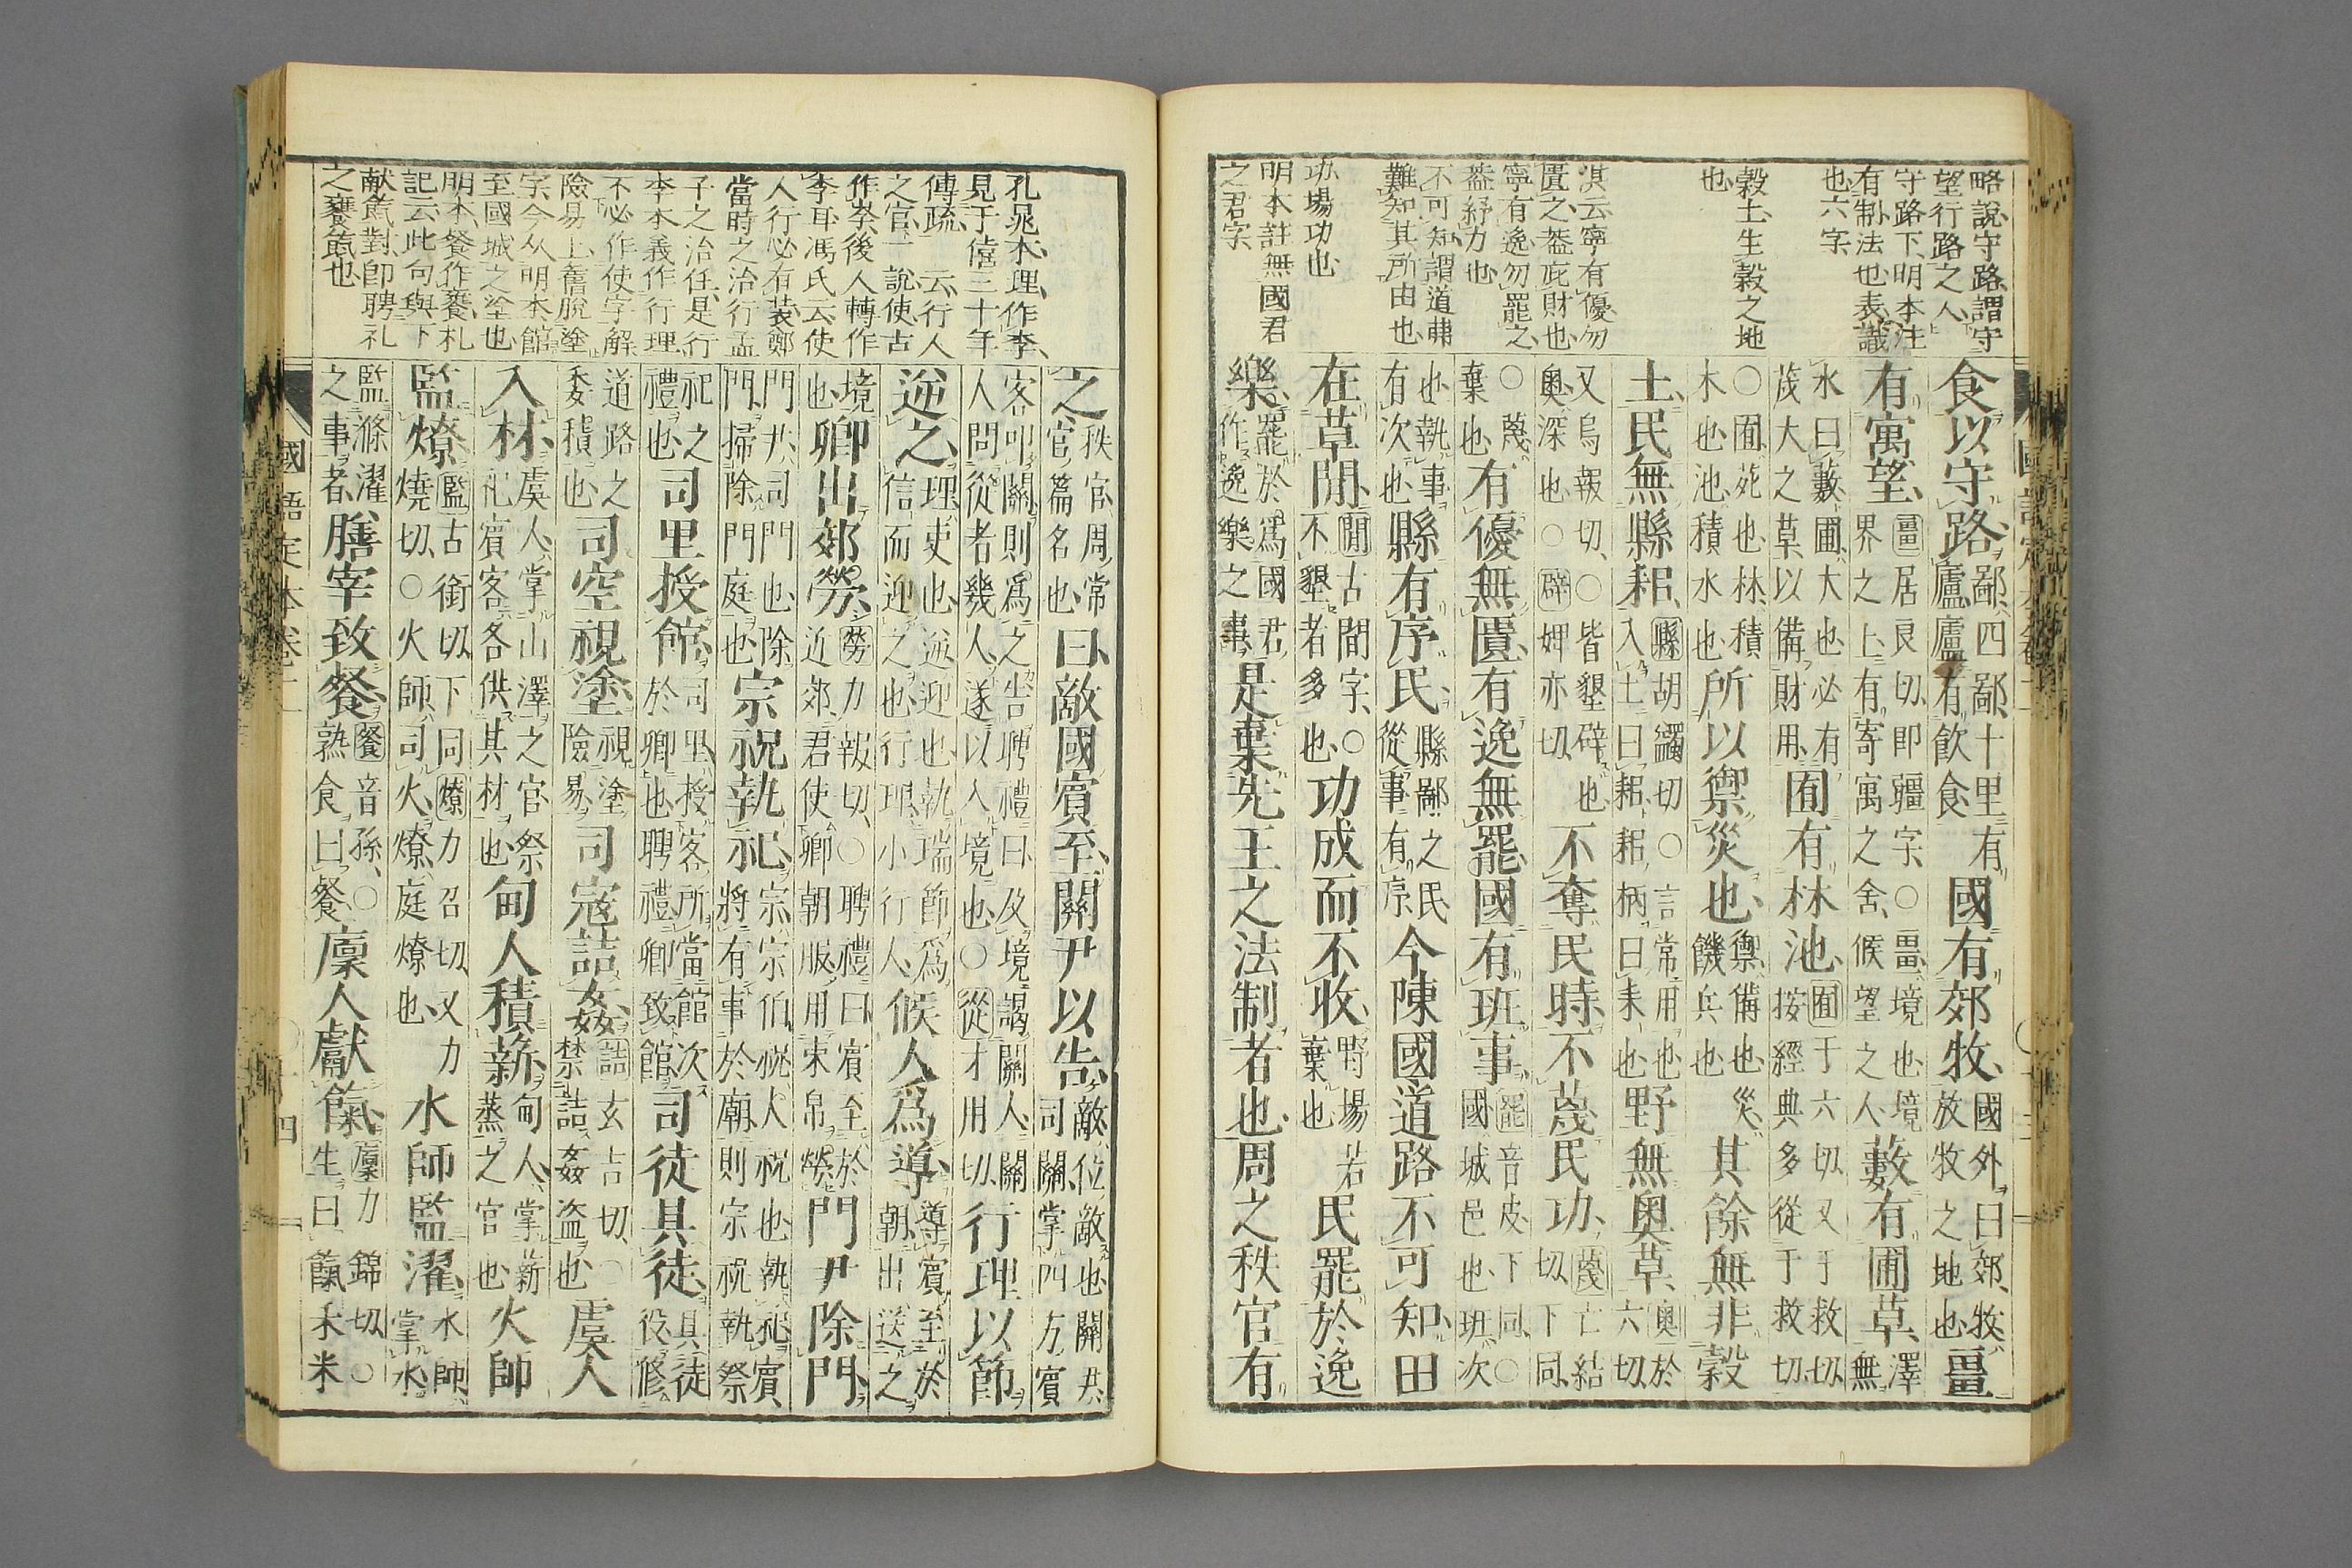 略説守路謂守
望行路之人
守路下明本注
有制法也表識
也六字
穀土生穀之地
也
淇云寧有優勿
匱之葢庇財也
寧有逸勿罷之
葢紓力也
不可知謂道茀
難知其所由也
功場功也
明本註無國君
之君字
食以守路、鄙四鄙十里有廬廬有飲食國有郊牧、國外曰郊牧放牧之地也畺
有寓望、畺居良切即疆字○畺境也境界之上有寄寓之舍候望之人藪有圃草、澤無
水曰藪圃大也必有茂大之草以備財用囿有林池、囿于六切又于救切按經典多從于救切
○囿苑也林積木也池積水也所以禦災也、禦備也災饑兵也其餘無非穀
土民無縣耜、縣胡蠲切○言常用也入土曰耜耜柄曰耒也野無奥草、奥於六切
又烏報切○皆墾辟也奥深也○辟婢亦切不奪民時不蔑民功、蔑亡結切下同
○蔑棄也有優無匱有逸無罷國有班事、罷音皮下同○國城邑也班次
也執事有次也縣有序民、縣鄙之民從事有序今陳國道路不可知田
在草間、間古閒字○不墾者多也功成而不收、野場若棄也民罷於逸
樂、罷於爲國君作逸樂之事是棄先王之法制者也周之秩官有
孔晁本理作李
見于僖三十年
傳疏云行人
之官一説使古
作岺後人轉作
李耳馮氏云使
人行必有裝鄭
當時之治行孟
子之治任是行
李本義作行理
不必作使字解
險易上舊脱塗
字今从明本館
至國城之塗也
明本餐作饔札
記云此句與下
献餼對即聘礼
之饔餼也
之、秩官周常官篇名也曰、敵國賓至、關尹以告、敵位敵也關尹司關掌四方賓
客叩關則爲之告聘禮曰及境謁關人關人問從者幾人遂以入境也○從才用切行理以節
逆之、理吏也逆迎也執瑞節爲信而迎之也行理小行人候人爲導、導賓至於朝出送之
境也卿出郊勞、勞力報切○聘禮曰賓至於近郊君使卿朝服用束帛勞門尹除門、
門尹司門也除門掃除門庭也宗祝執祀、宗宗伯祝大祝也執祀賓將有事於廟則宗祝執祭
祀之禮也司里授館、司里授客所當館次於卿也聘禮卿致館司徒具徒、具徒役修
道路之委積也司空視塗、視塗險易司寇詰姦、詰去吉切○禁詰姦盗也虞人
入材、虞人掌山澤之官祭祀賓客各供其材也甸人積薪、甸人掌薪蒸之官也火師
監燎、監古銜切下同燎力召切又力燒切○火師司火燎庭燎也水師監濯、水師掌水
監滌濯之事者膳宰致餐、餐音孫○熟食曰餐廩人獻餼、廩力錦切○生曰餼禾米
國語定本卷二
四